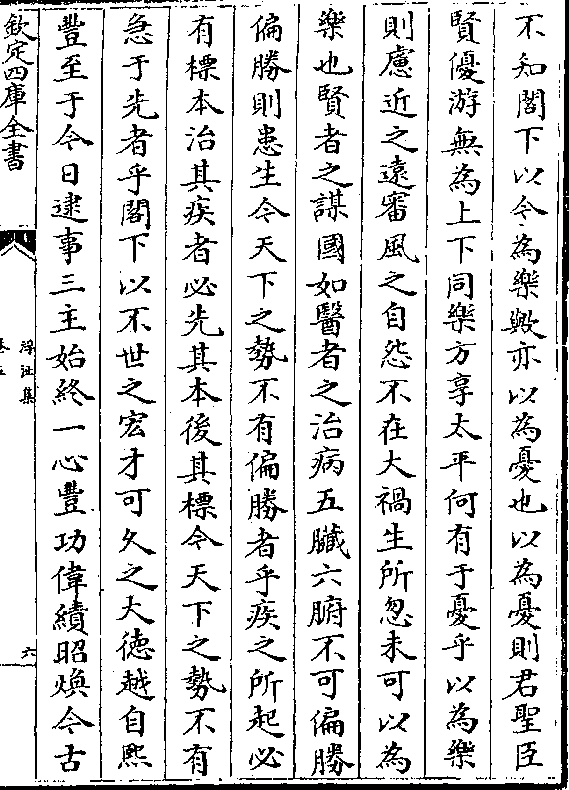 不知閣下以今為樂歟亦以為憂也以為憂則君聖臣
賢優游無為上下同樂方享太平何有于憂乎以為樂
則慮近之遠審風之自怨不在大禍生所忽未可以為
樂也賢者之謀國如醫者之治病五臟六腑不可偏勝
偏勝則患生今天下之勢不有偏勝者乎疾之所起必
有標本治其疾者必先其本後其標今天下之勢不有
急于先者乎閣下以不世之宏才可久之大德越自熙
豐至于今日逮事三主始終一心豐功偉績昭煥今古
欽定四庫全書
浮沚集
六